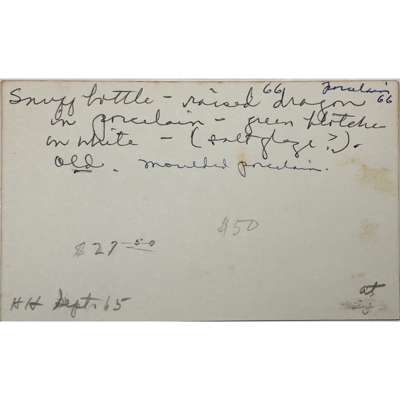 66 Porcelain
66
Snuff bottle - raised dragon
in porcelain - green blotches
on white - (salt glaze?).
Old. moulded porcelain.
$50
$27.50
at
HH Sept. 65